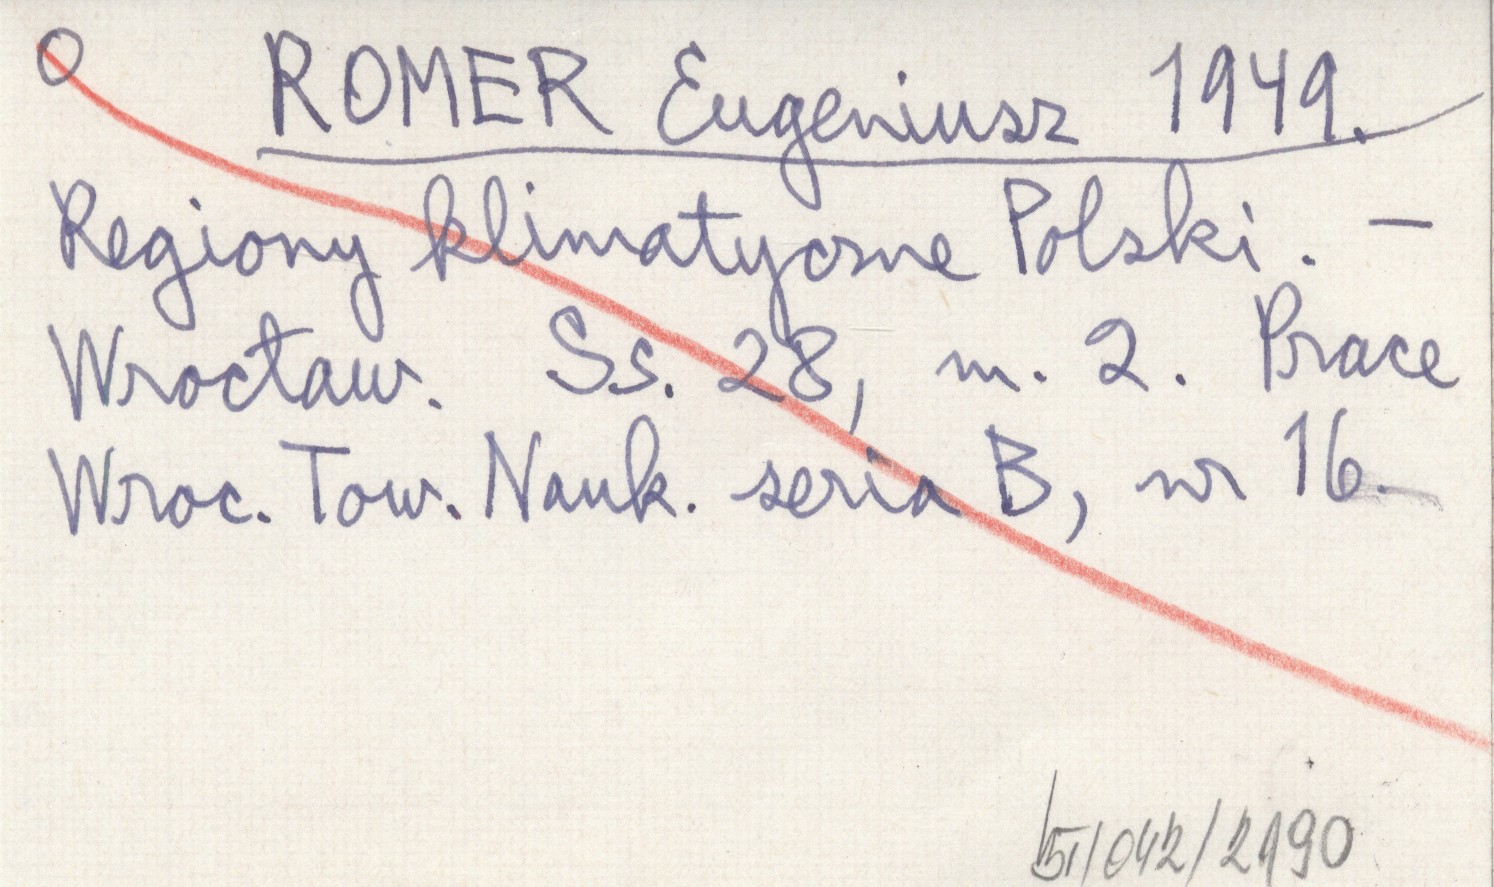 ROMER Eugeniusz 1949.
Regiony klimatyczne Polski. –
Wrocław. Ss. 28, m. 2. Prace
Wroc. Tow. Nauk. seria B, nr 16.
/042/2190